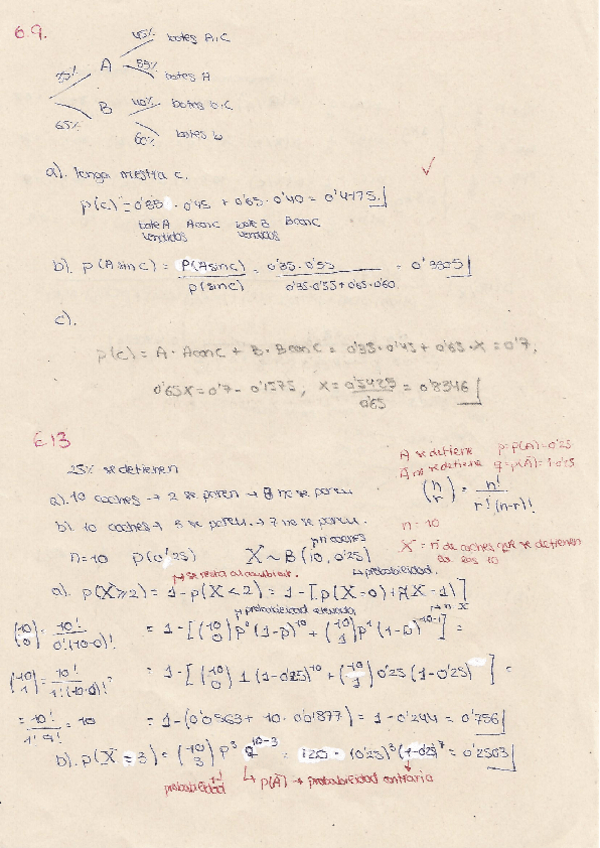 6.9.
45% botes A.C
35% A 55% botes A
B 40% botes b.C
65% 60% botes b
a). tenga mestra c.
p(c.) = 0'35 · 0'45 + 0'65 · 0'40 = 0'4175
bote A A con C bote B B con C
vendidos vendidos
b). p(A sin c) = P(A sin c) / p(sin c) = 0'35·0'55 / 0'35·0'55+0'65·0'60 = 0'3305
c).
p(c) = A · A con C + B · B con C = 0'35·0'45 + 0'65·X = 0'7;
0'65X = 0'7 - 0'1575; X = 0'5425 / 0'65 = 0'8346
E13
25% se detienen
A se detiene p=p(A)=0'25
Ā no se detiene q=p(Ā)=1-0'25
(n r) = n! / r!(n-r)!
a). 10 coches → 2 se paren → 8 no se paren
b). 10 coches → 3 se paren → 7 no se paren.
n = 10
X = nº de coches que se detienen
de los 10
n=10 p(0'25) X ~ B(10, 0'25)
nº coches
probabilidad.
se resta al cambiar.
a). p(X≥2) = 1 - p(X<2) = 1 - [p(X=0) + p(X=1)]
probabilidad elevada n x
(10 0) · 10! / 0!(10-0)! = 1 - [(10 0) p⁰ (1-p)¹⁰ + (10 1) p¹ (1-p)¹⁰⁻¹] =
(10 1) = 10! / 1!(10-1)! = 1 - [(10 0) 1 (1-0'25)¹⁰ + (10 1) 0'25 (1-0'25)] =
= 10! / 1! 9! = 10 = 1 - (0'0563 + 10 · 0'01877) = 1 - 0'244 = 0'756
b). p(X = 3) = (10 3) p³ q¹⁰⁻³ = 120 · (0'25)³ (1-0'25)⁷ = 0'2503
probabilidad p(Ā) → probabilidad contraria